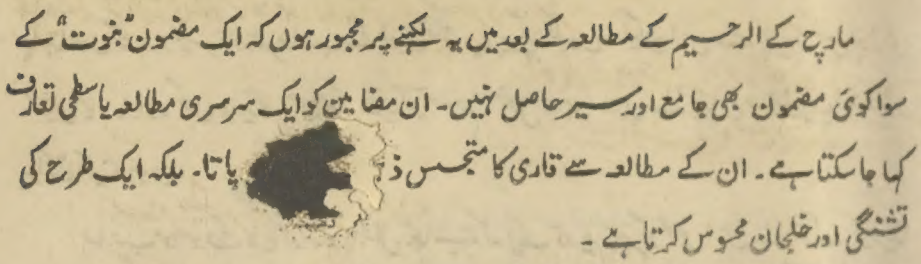 مارچ کے الرحیم کے مطالعہ کے بعد میں یہ لکھنے پر مجبور ہوں کہ ایک مضمون "نبوت" کے
سوا کوئی مضمون بھی جامع اور سیر حاصل نہیں۔ ان مضامین کو ایک سرسری مطالعہ یا سطحی تعارف
کہا جا سکتا ہے۔ ان کے مطالعہ سے قاری کا متجسس پاتا۔ بلکہ ایک طرح کی
تشنگی اور خلجان محسوس کرتا ہے۔